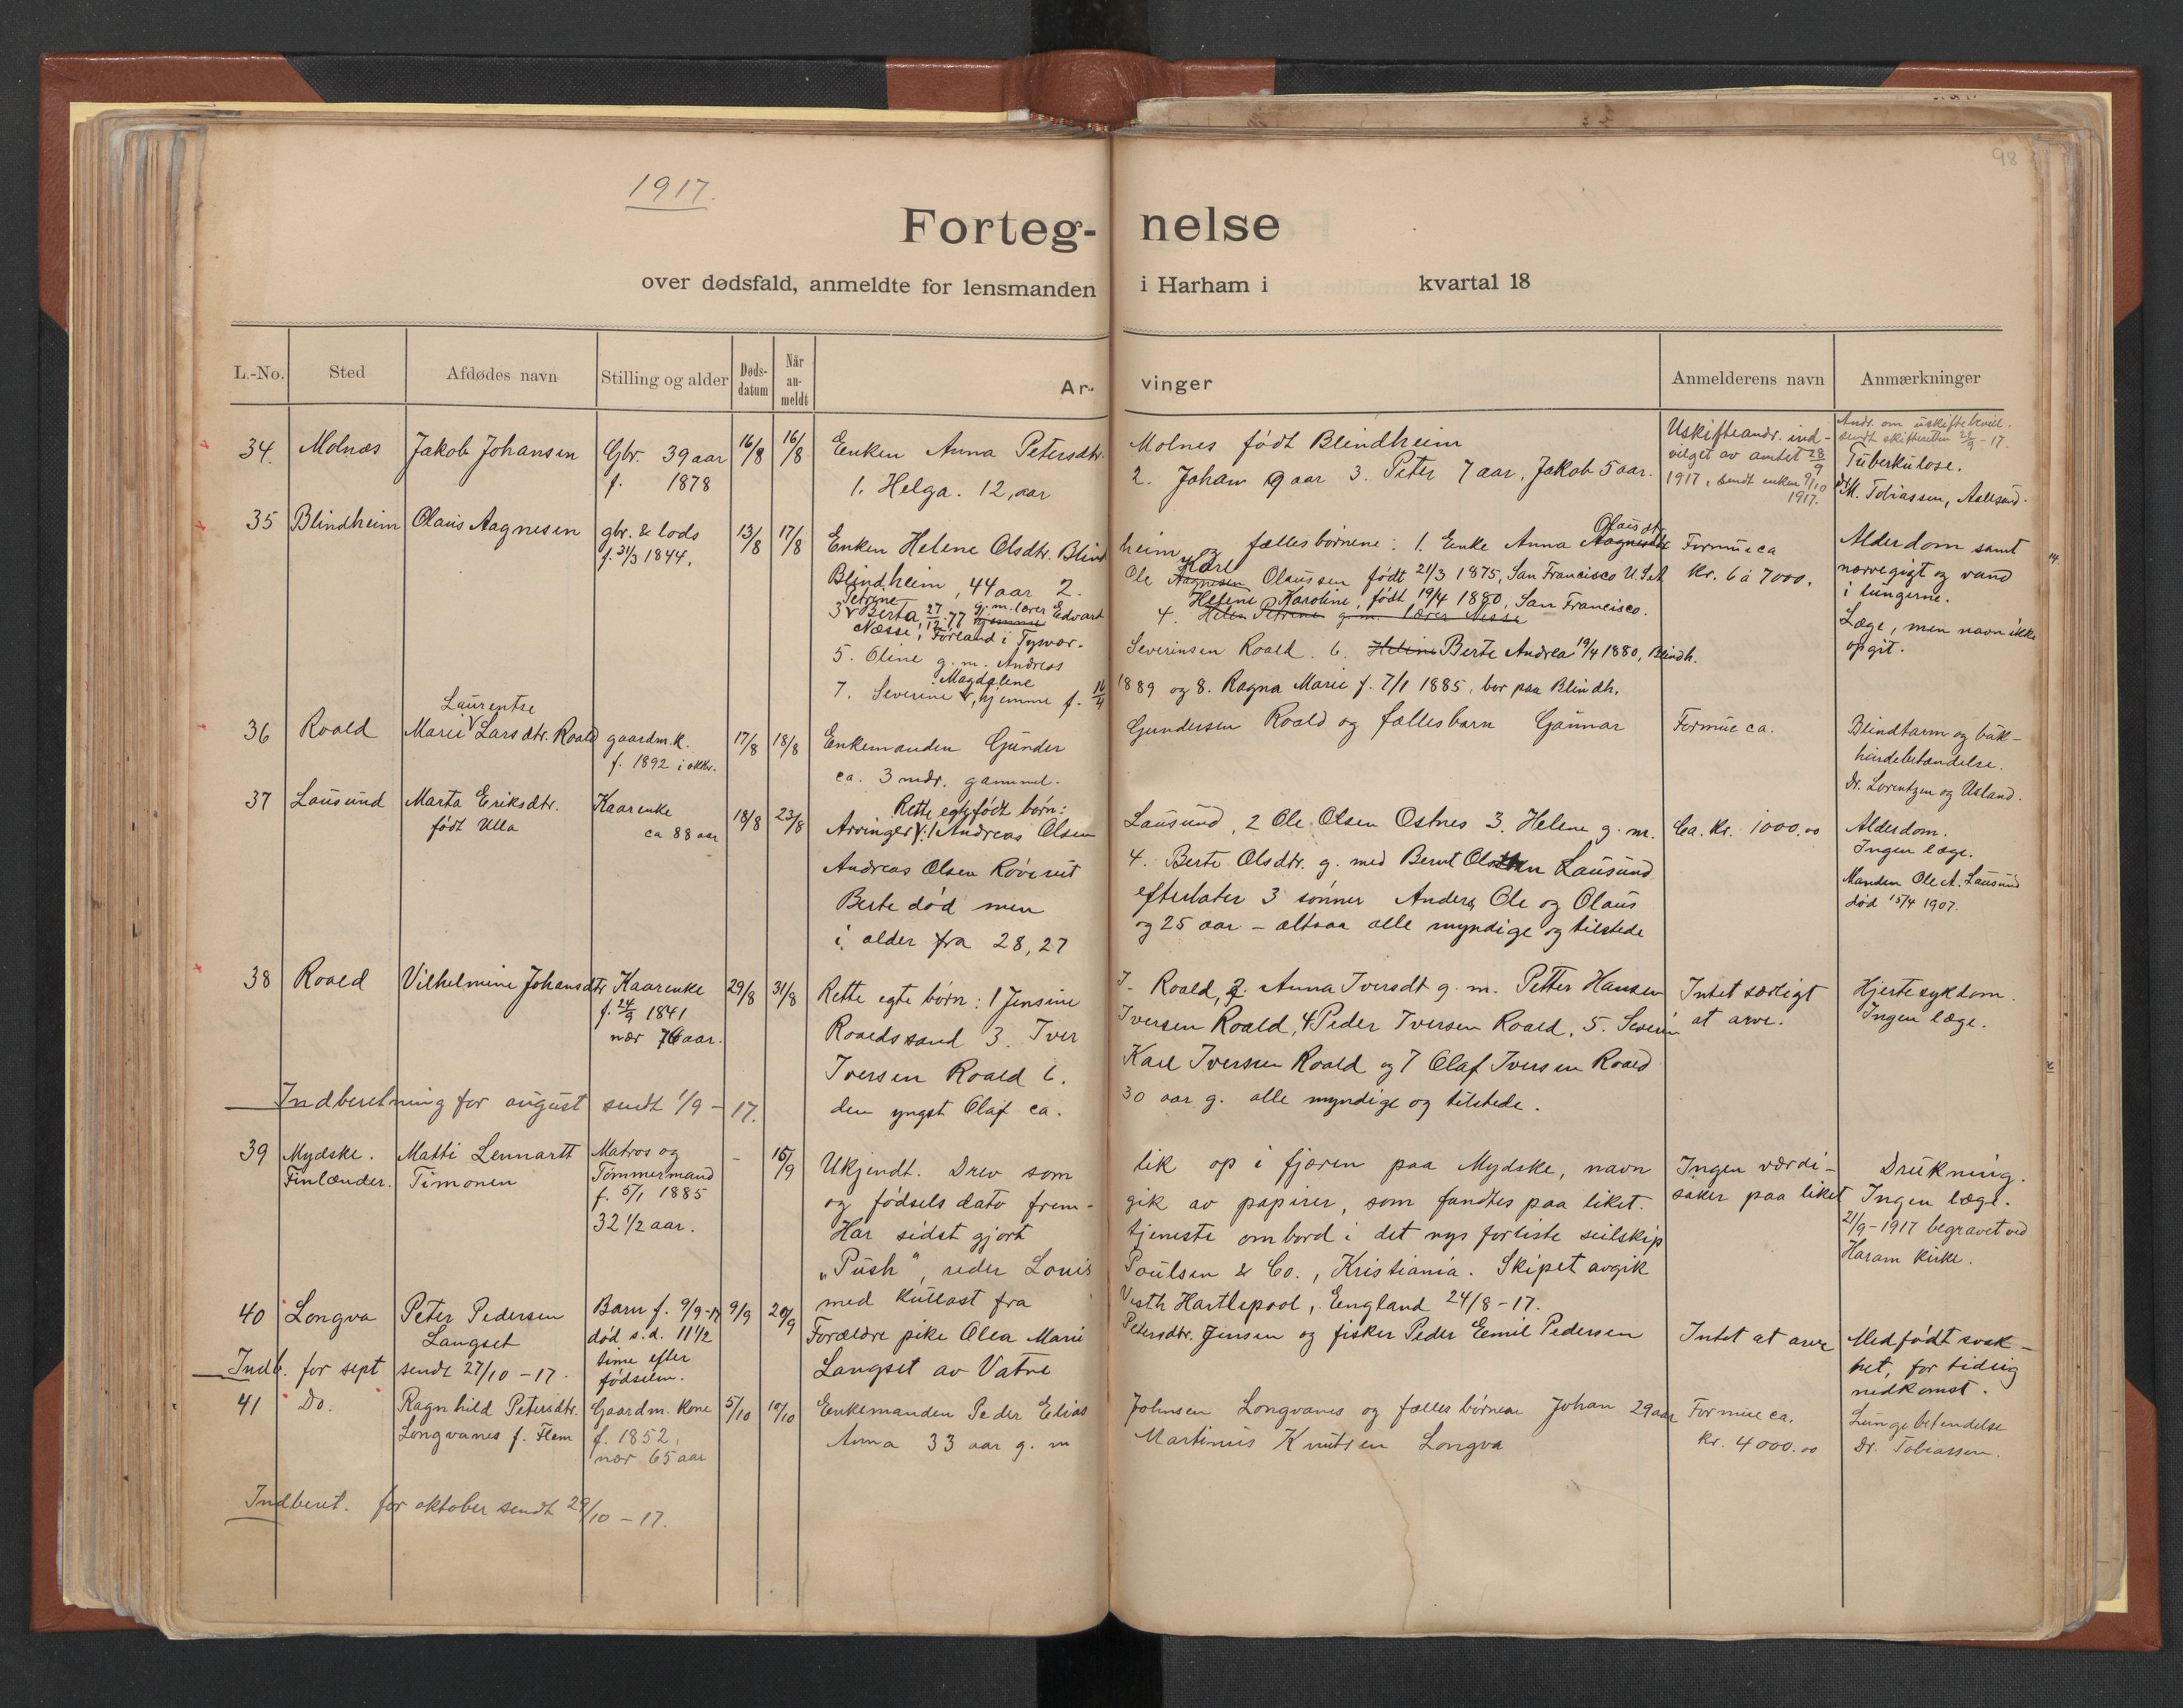 98
1917.
Forteg- nelse
over dødsfald, anmeldte for lensmanden i Harham i kvartal 18
L.-No. Sted Afdødes navn Stilling og alder Døds-datum Når an-meldt Ar- vinger Anmelderens navn Anmærkninger
34. Molnæs Jakob Johansen Gbr. 39 aar 16/8 16/8 Enken Anna Petersdtr. Molnes født Blindheim
f. 1878 1. Helga. 12 aar 2. Johan 9 aar 3. Peter 7 aar. Jakob 5 aar.
Uskifteandr. ind-
vilget av amtet 28/9
1917, sendt enken 9/10
1917.
Andr. om uskiftebevil.
sendt skifteretten 22/9 - 17.
Tuberkulose.
Dr. M. Tobiassen, Aalesund.
35 Blindheim Olaus Aagnesen gbr. & lods 13/8 17/8 Enken Helene Olsdtr. Blind heim og fællesbørnene: 1. Enke Anna Aagnesdtr Olausdtr
f. 31/3 1844.
Blindheim, 44 aar 2. Ole Aagnesen Karl Olaussen født 21/3 1875, San Francisco U.S.A
3 Berta Petrine 27/12 77 hjemme g. m. lærer Edvart 4. Helen Petrine g. m. lærer Nesse Helene Karoline, født 19/4 1880, San Francisco.
Næsse, Førland i Tysvær.
5. Oline g. m. Andreas Severinsen Roald. 6. Helene Berte Andrea 19/4 1880, Blindh.
7. Severine Magdalene, hjemme f. 16/4 1889 og 8. Ragna Marie f. 7/1 1885, bor paa Blindh.
Formue ca
kr. 6 á 7000.
Alderdom samt
nervegigt og vand
i lungerne.
Læge, men navn ikke
opgit.
14.
36 Roald Marie Laurentse Larsdtr. Roald gaardm. k. 17/8 18/8 Enkemanden Gunder Gundersen Roald og fællesbarn Gunnar
f. 1892 i oktbr. ca. 3 mdr. gammel.
Formue ca.
Blindtarm og buk-
hindebetændelse.
Dr. Lorentzen og Usland.
37 Lausund Marta Eriksdtr. Kaarenke 18/8 23/8 Arvinger: Rette egtefødt børn: 1 Andreas Olsen Lausund, 2 Ole Olsen Ostnes 3. Helene g. m.
født Ulla ca 88 aar
Andreas Olsen Røvreit 4. Berte Olsdtr. g. med Bernt Olsen Lausund
Berte død men efterlater 3 sønner Anders, Ole og Olaus
i alder fra 28, 27 og 25 aar - altsaa alle myndige og tilstede
Ca. kr. 1000.00
Alderdom.
Ingen læge.
Manden Ole A. Lausund
død 15/4 1907.
38 Roald Vilhelmine Johansdtr Kaarenke 29/8 31/8 Rette egte børn: 1 Jensine I. Roald, 2. Anna Iversdt g. m. Petter Hansen
f. 24/9 1841 Roaldssand 3. Iver Iversen Roald, 4 Peder Iversen Roald, 5. Severin
nær 76 aar. Iversen Roald 6. Karl Iversen Roald og 7 Olaf Iversen Roald
den yngst Olaf ca. 30 aar g. alle myndige og tilstede.
Intet særligt
at arve.
Hjertesykdom.
Ingen læge.
Indberetning for august sendt 1/9 - 17.
39 Mydske. Matti Lennartt Matros og - 15/9 Ukjendt. Drev som lik op i fjæren paa Mydske, navn
Finlænder. Timonen Tømmermand og fødsels dato frem- gik av papirer, som fandtes paa liket.
f. 5/1 1885 Har sidst gjort tjeneste ombord i det nys forliste seilskip
32 1/2 aar. "Push", reder Louis Poulsen & Co., Kristiania. Skipet avgik
med kullast fra Vesth Hartlepool, England 24/8 - 17.
Ingen værdi-
saker paa liket
Drukning.
Ingen læge.
21/9 - 1917 begravet ved
Haram kirke.
40 Longva Peter Pedersen Barn f. 9/9-17 9/9 20/9 Forældre pike Olea Marie Petersdtr. Jensen og fisker Peder Eemil Pedersen
Langset død s. d. 11 1/2 Langset av Vatne
time efter
fødselen.
Intet at arve
Medfødt svak-
het, for tidlig
nedkomst.
Indb. for sept sendt 27/10 - 17.
41 Do. Ragnhild Petersdtr. Gaardm. kone 5/10 10/10 Enkemanden Peder Elias Johnsen Longvanes og fællesbørnene Johan 29 aar
Longvanes f. Flem f. 1852, Anna 33 aar g. m Martinus Knutsen Longva
nær 65 aar
Formue ca.
kr. 4000.00
Lungebetendelse
Dr. Tobiassen.
Indberet. for oktober sendt 29/10 - 17.